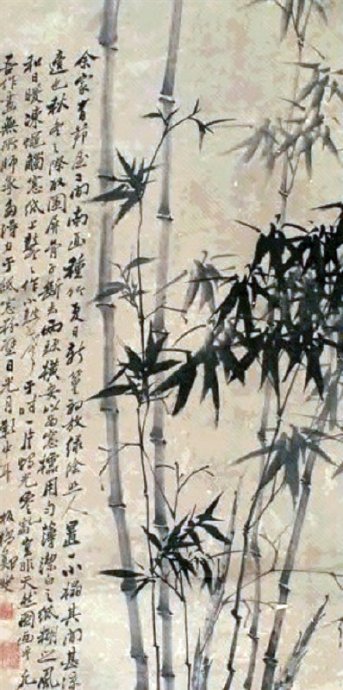 余家有茅屋二间南面種竹夏日新篁初放綠陰照人置一小榻其中甚涼
適也秋冬之際取圍屏骨子斷去兩頭橫安以為窗櫺用勻薄潔白之紙糊之風
和日暖凍蠅觸窗紙上鼕々作小鼓聲于時一片竹影零亂豈非天然圖畫乎凡
吾作畫無所師承多得力于紙窗粉壁日光月影中耳 板橋鄭燮